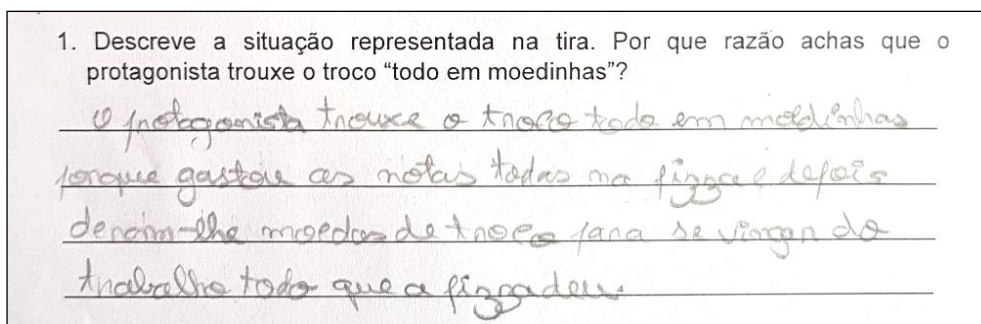 1. Descreve a situação representada na tira. Por que razão achas que o
protagonista trouxe o troco “todo em moedinhas”?
O protagonista trouxe o troco todo em moedinhas
porque gastou as notas todas na pizza e depois
deram-lhe moedas de troco para se vingar do
trabalho todo que a pizza deu.